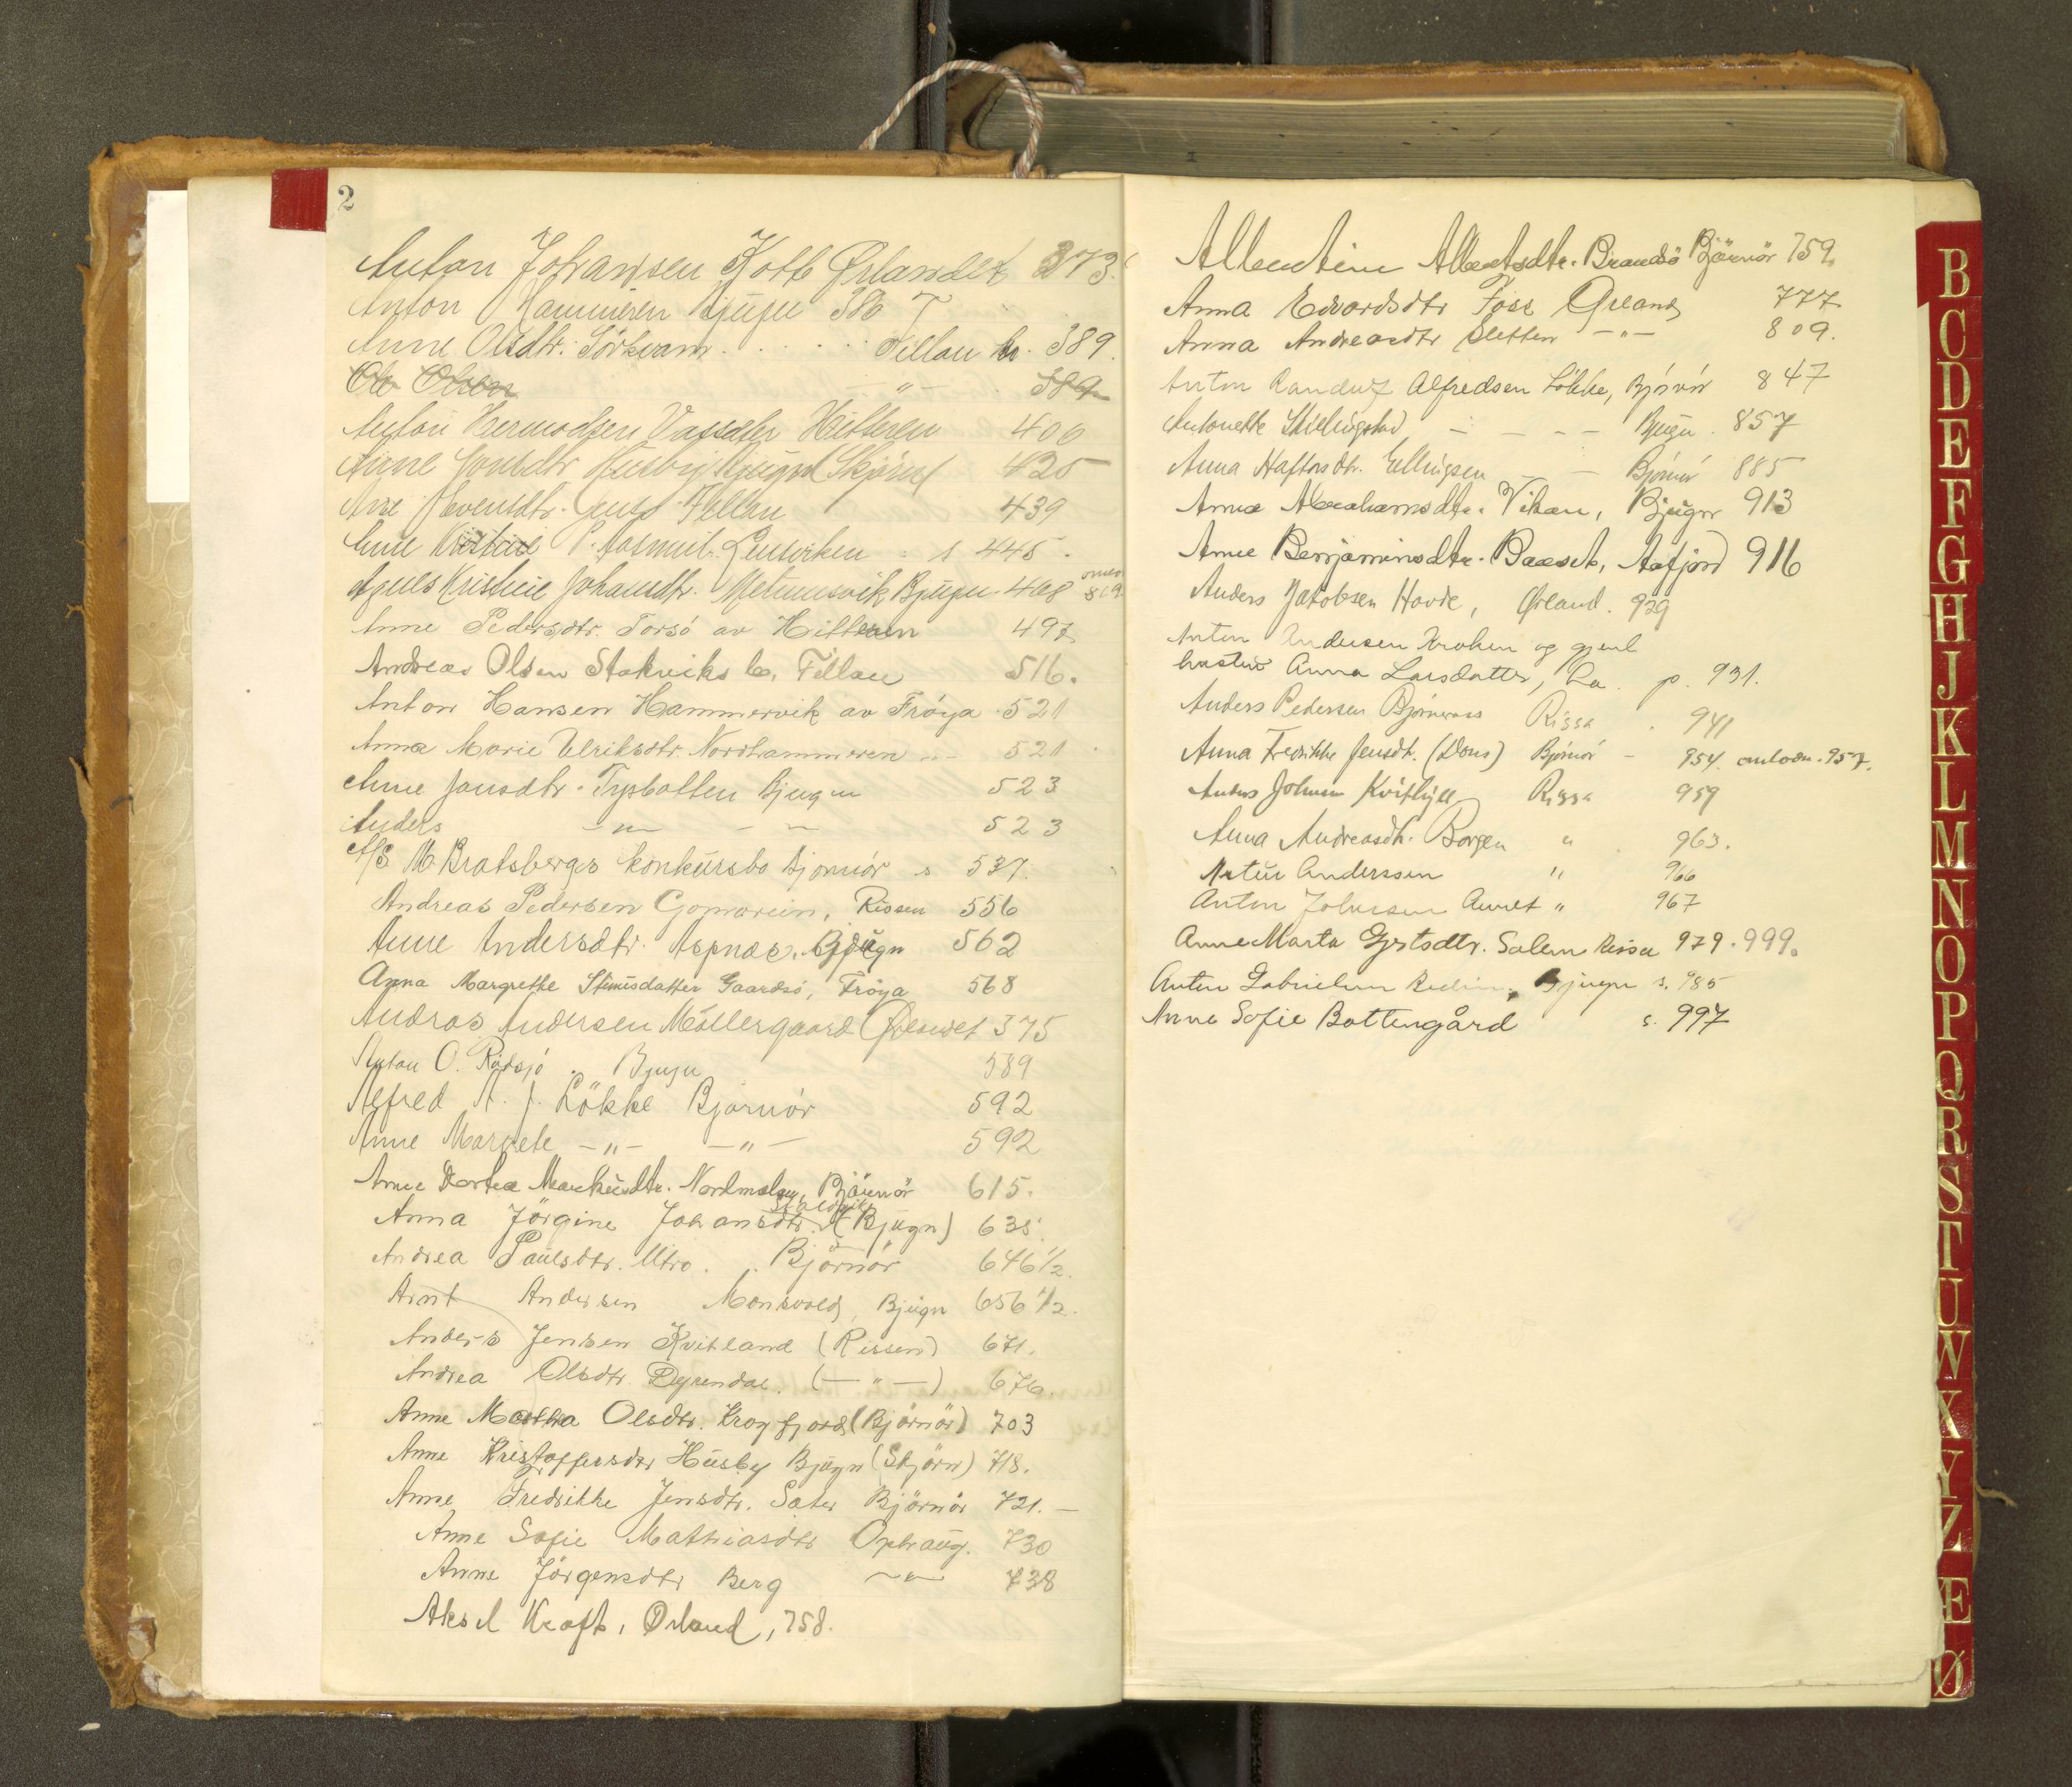 2
Anton Johansen Kotb Ørlandet 373.
Anton Hammeren Bjugn 386
Anne Olsdtr. Sörkvam . . . . . Fillan hr. 389.
Ole Olsen — " — 389
Anton Hermodsen Vasseter Hitteren 406
Anne Jonsdtr Husby Bjugn (Skjörn) 425
Ane Evensdtr. Fillan 439
Anne Kristine P. Leksviken s 445.
Agnes Kristine Johansdtr. Metunsvik Bjugn 468 819
Anne Pedersdtr. Torsö av Hitteren 497
Andreas Olsen Stakviks b, Fillan 516.
Anton Hansen Hammervik av Fröya 521
Anna Marie Ulriksdtr. Nordhammeren — " — 521
Anne Jonsdtr. Tysbotten Bjugn 523
Anders — " — — " — 523
A/S M. Bratsbergs konkursbo Bjørnör s 537.
Andreas Pedersen Rissen 556
Anne Andersdtr. Aspnæs. Bjugn 562
Anna Margrethe Gaardsö, Fröya 568
Andreas Andersen Möllergaard Ørlandet 375
Anton O. Rödsjö . Bjugn 589
Alfred A. J. Lökke Bjørnör 592
Anne Margrete — " — — " — 592
Anne Dortea Markusdtr. Nordmelan, Bjørnör 615.
Anna Jörgine Johansdtr. (Bjugn) 635.
Andrea Paulsdtr. Utro . . Björnör 646 1/2.
Arnt Andersen Monsvold, Bjugn 656 1/2.
Anders Jensen Kvitland (Rissen) 671.
Andrea Olsdtr. Dyrendal. (— " —) 676.
Anne Martha Olsdtr. Krogfjord (Björnör) 703
Anne Kristoffersdtr Husby Bjugn (Skjörn) 718.
Anne Fredrikke Jensdtr. Sæter Björnör 721. —
Anne Sofie Mathiasdtr Ophaug. 730
Anne Jörgensdtr Berg — " — 738
Aksel Kraft, Ørland, 758.
Albertine Albertsdtr. Brandsö Bjørnör 759.
Anna Edvardsdtr Foss Ørland 777
Anna Andreasdtr Sletten — " — 809.
Anton Randulf Alfredsen Lökke, Bjørnör 847
Antonette Skillingstad — — — — Bjugn . 857
Anna Haftorsdtr. Ellingsen — — Bjørnör 885
Anna Abrahamsdtr. Vikan, Bjugn 913
Anne Benjaminsdtr. Aafjord 916
Anders Jakobsen Hovde, Ørland. 929
Anton Andersen Kroken og gjenl
hustru Anna Larsdatter, p. 931.
Anders Pedersen Rissa . 941
Anna Fredrikke Jensdtr. (Dons) Bjørnör — 954. omlodn. 957.
Anders Johnsen Kvithyll Rissa 959
Anna Andreasdtr. Borgen " . 963.
Artur Anderssen " 966
Anton Johnssen Aunet " 967
Anne Marta Gjertsdtr. Solem Rissa 979 . 999.
Anton Gabrielsen Bjugn s. 985
Anne Sofie Bottengård s. 997
B
C
D
E
F
G
H
J
K
L
M
N
O
P
Q
R
S
T
U
W
X
Y
Z
Æ
Ø